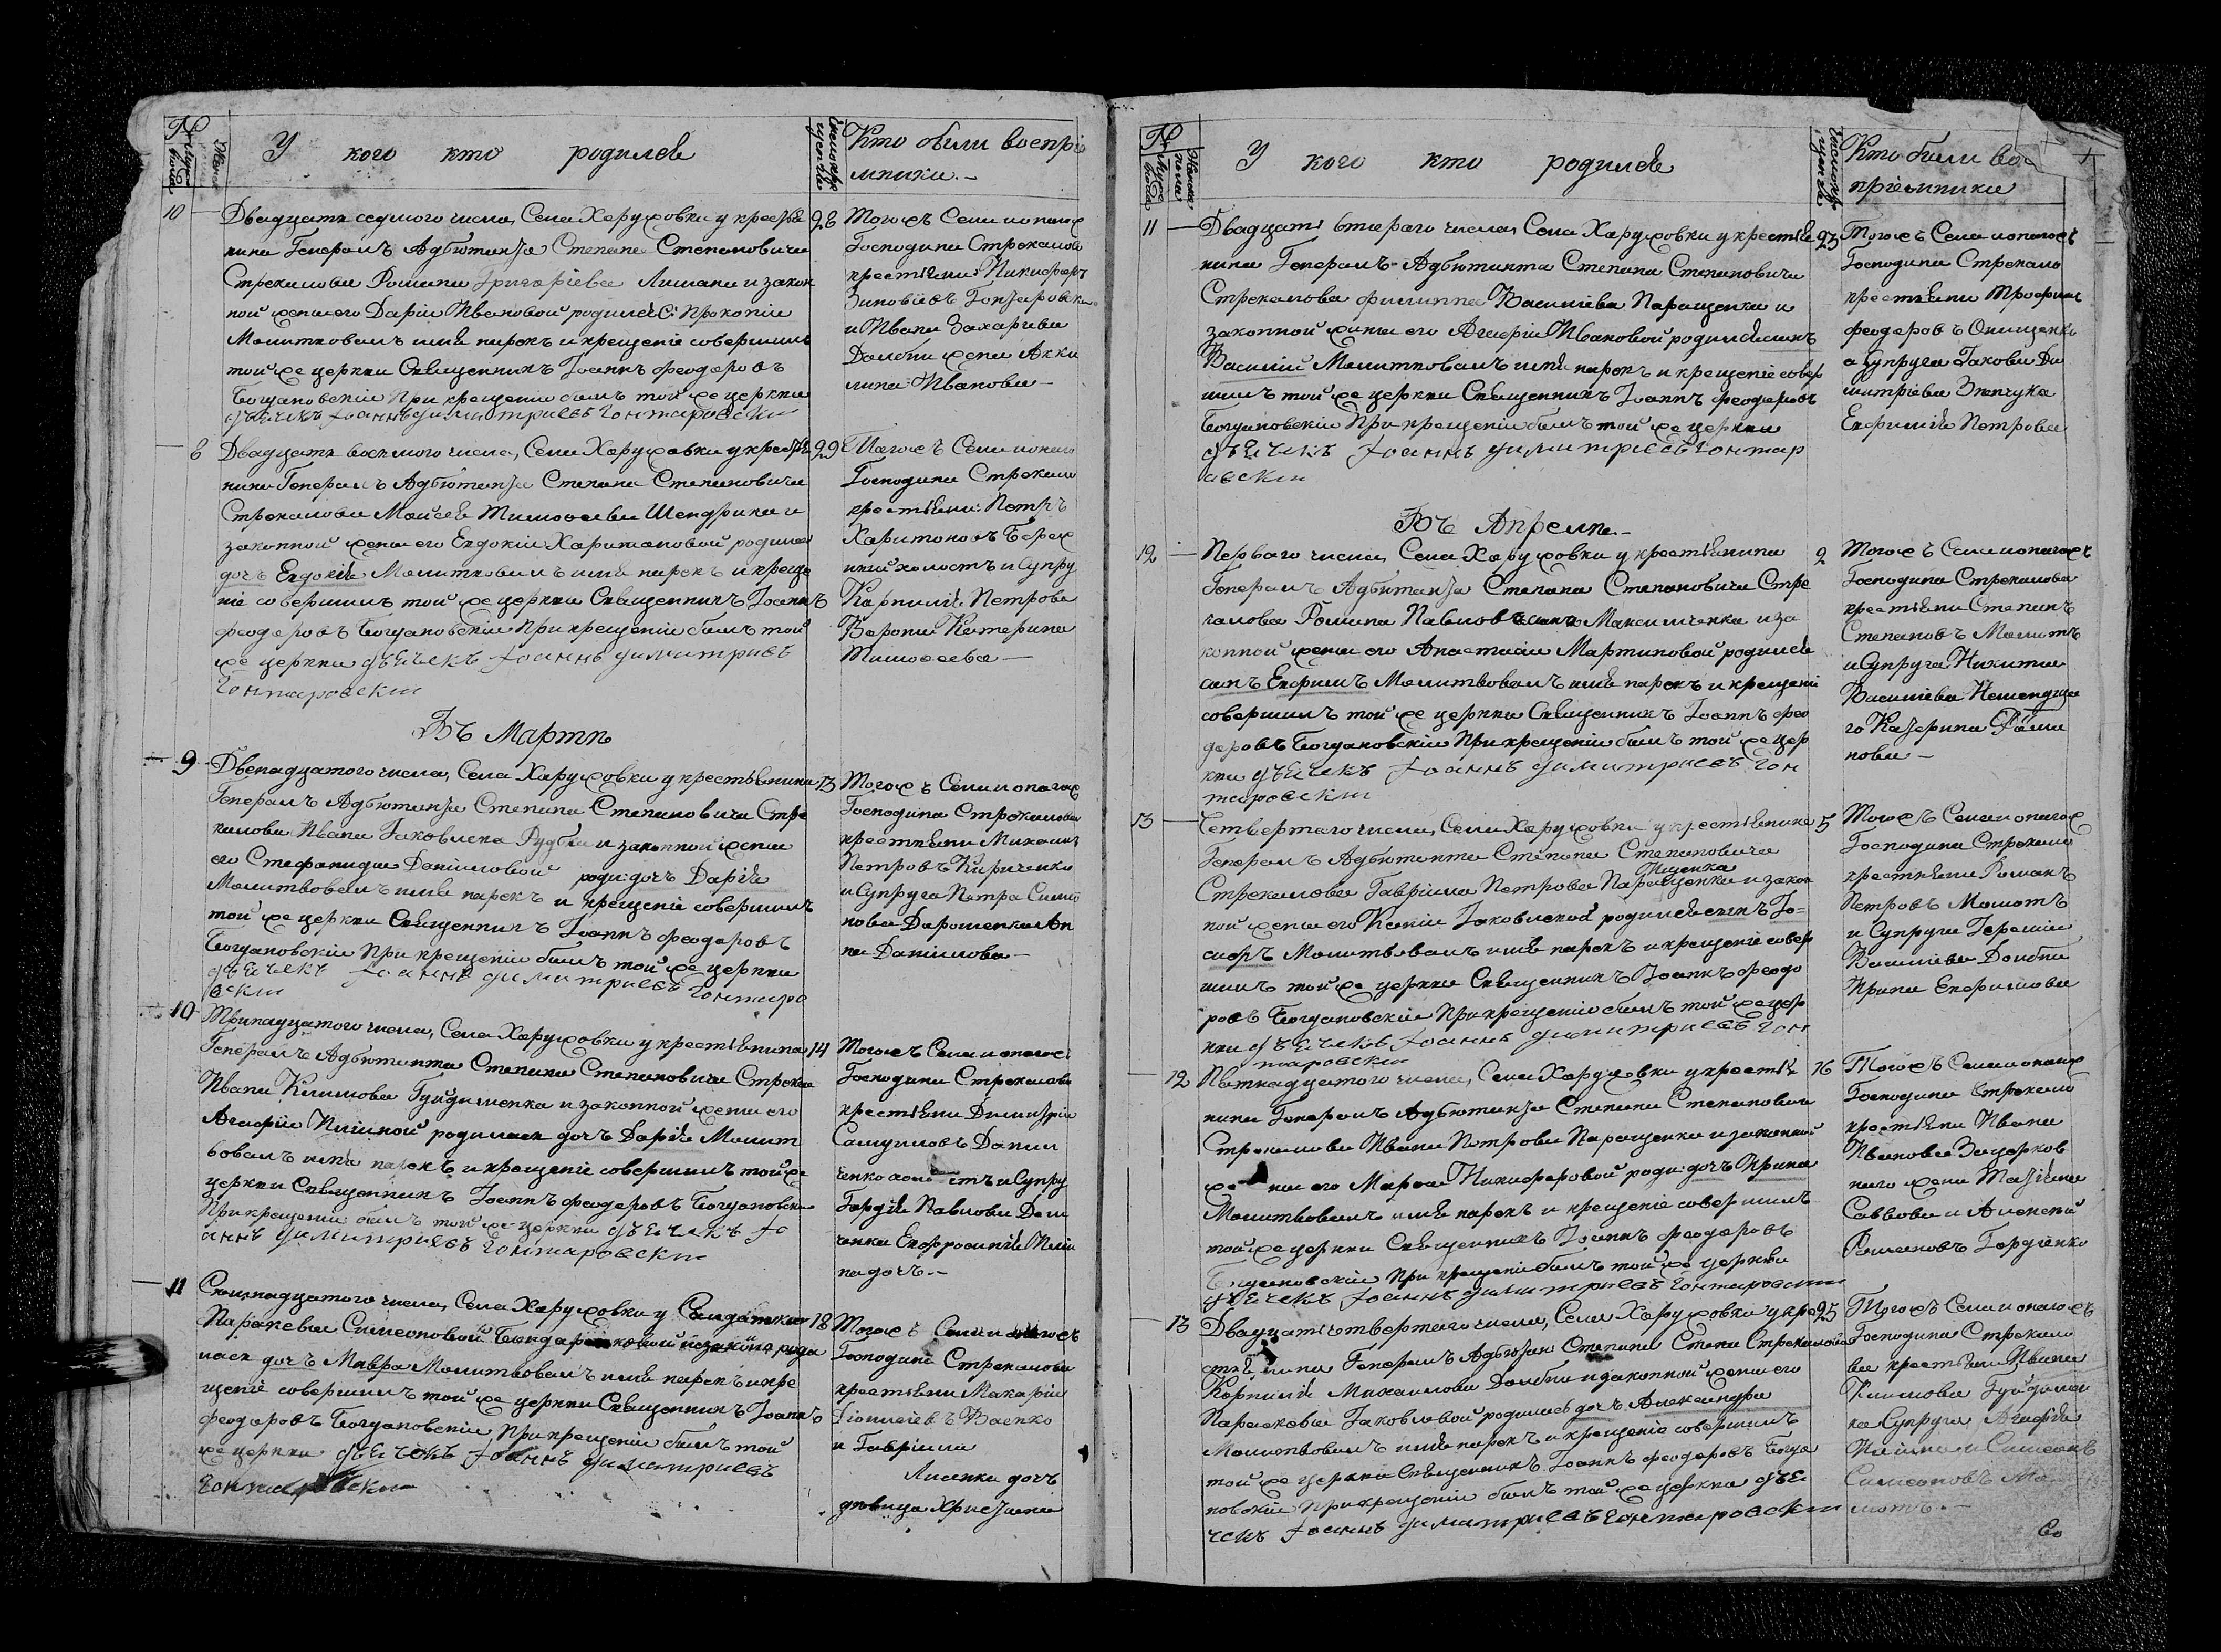 У кого кто родился
Кто были воспрiе
мники.
10
Двадцать седмого числа, Села Харуховки у крестья
нина Генералъ Адъютанта Степана Степановича
Стрекалова Романа Григорiева Лимана и закон
ной жены его Дарiи Ивановой родился С: Прокопiй
Молитвовалъ имя нарекъ и крещенiе совершилъ
той же церкви Священникъ Iоаннъ Феодоровъ
Богдановскiй При крещенiи былъ той же церкви
дьячекъ Iоаннъ Димитрiевъ Гонтаровскiй
28
Тогожъ Села и пана
Господина Стрекалова
крестьяне: Никифоръ
Зиновiевъ Гонтаровскiй
и Ивана Захарiева
Долбни жена Акки
лина Иванова
8
Двадцать восмого числа, Села Харуховки у крестья
нина Генералъ Адъютанта Степана Степановича
Стрекалова Моисея Тимоѳеева Шендрика и
законной жены его Евдокiи Харитоновой родилась
дочь Евдокiя Молитвовалъ имя нарекъ и креще
нiе совершилъ той же церкви Священникъ Iоаннъ
Феодоровъ Богдановскiй При крещенiи былъ той
же церкви дьячекъ Iоаннъ Димитрiевъ
Гонтаровскiй
29
Тогожъ Села
Господина Стрекало
крестьяне: Петръ
Харитоновъ
холостъ и Супру
Корнилiя Петрова
Ворона Катерина
Тимоѳеева
Въ Мартѣ
9
Двенадцатого числа, Села Харуховки у крестьянина
Генералъ Адъютанта Степана Степановича Стре
калова Ивана Iаковлева Рудѣя и законной жены
его Стефаниды Данiиловой роди: дочь Дарiя
Молитвовалъ имя нарекъ и крещенiе совершилъ
той же церкви Священникъ Iоаннъ Феодоровъ
Богдановскiй При крещенiи былъ той же церкви
дьячекъ Iоаннъ Димитрiевъ Гонтаро
вскiй
13
Тогожъ Села и тогож
Господина Стрекалова
крестьяне Михаилъ
Петровъ Кириченко
и Супруга Петра Симо
нова Дорошенка Ан
на Данiилова
10
Тринадцатого числа, Села Харуховки у крестьянина
Генералъ Адъютанта Степана Степановича Стрекал
Ивана Климова Гуйдименка и законной жены его
Агафiи Илiиной родилась дочь Дарiя Молит
вовалъ имя нарекъ и крещенiе совершилъ той же
церкви Священникъ Iоаннъ Феодоровъ Богдановскiй
При крещенiи былъ той же церкви дьячекъ Iо
аннъ Димитрiевъ Гонтаровскiй
14
Тогожъ Села и тогожъ
Господина Стрекалова
крестьяне Димитрiй
Самуиловъ Данил
ченко холостъ и Супру
Гордѣя Павлова Дем
ченка Евфросинiя Илiи
на дочь
11
Семнадцатого числа, Села Харуховки у Солдатки
Параскевы Симеоновой Бондаренковой незакон: роди
лась дочь Мавра Молитвовалъ имя нарекъ и кре
щенiе совершилъ той же церкви Священникъ Iоаннъ
Феодоровъ Богдановскiй При крещенiи былъ той
же церкви дьячекъ Iоаннъ Димитрiевъ
Гонтаровскiй
18
Тогожъ Села и тогожъ
Господина Стрекалова
крестьяне Макарiй
Васько
и Гаврiила
Лисенка дочь
дѣвица Христина
У кого кто родился
Кто были вос
прiемники
11
Двадцать втораго числа, Села Харуховки у крестья
нина Генералъ-Адъютанта Степана Степановича
Стрекалова Филиппа Василiева Паращенка и
законной жены его Агафiи Ивановой родился сынъ
Василiй Молитвовалъ имя нарекъ и крещенiе совер
шилъ той же церкви Священникъ Iоаннъ Феодоровъ
Богдановскiй При крещенiи былъ той же церкви
дьячекъ Iоаннъ Димитрiевъ Гонтар
овскiй
23
Тогожъ Села и тогожъ
Господина Стрекало
крестьяне Трофимъ
Феодоровъ Онищенко
а Супруга Iакова Ди
митрiева Зинчука
Евфимiя Петрова
Въ Апрелѣ
12
Перваго числа, Села Харуховки у крестьянина
Генералъ Адъютанта Степана Степановича Стре
калова Романа Павлова Максимченка и за
конной жены его Анастасiи Мартиновой родился
сынъ Евфимъ Молитвовалъ имя нарекъ и крещенiе
совершилъ той же церкви Священникъ Iоаннъ Фео
доровъ Богдановскiй При крещенiи былъ той же цер
кви дьячекъ Iоаннъ Димитрiевъ Гон
таровскiй
2
Тогожъ Села и тогожъ
Господина Стрекалова
крестьяне Степанъ
Степановъ Момотъ
и Супруга Никиты
Василiева
го Катерина Рома
нова
13
Четвертаго числа, Села Харуховки у крестьянина
Генералъ Адъютанта Степана Степановича
Стрекалова Гаврiила Петрова Паращенка и закон
ной жены его Ксенiи Iаковлевой родился сынъ Iо=
сифъ Молитвовалъ имя нарекъ и крещенiе совер
шилъ той же церкви Священникъ Iоаннъ Феодо
ровъ Богдановскiй При крещенiи былъ той же цер
кви дьячекъ Iоаннъ Димитрiевъ Гон
таровскiй
5
Тогожъ Села и тогож
Господина Стрекало
крестьяне Романъ
Петровъ Момотъ
и Супруга Iеремiи
Василiева Долбни
Ирина Евфимова
12
Пятнадцатого числа, Села Харуховки у крестья
нина Генералъ Адъютанта Степана Степановича
Стрекалова Ивана Петрова Паращенка и законной
жены его Марѳы Никифоровой роди: дочь Ирина
Молитвовалъ имя нарекъ и крещенiе совершилъ
той же церкви Священникъ Iоаннъ Феодоровъ
Богдановскiй При крещенiи былъ той же церкви
дьячекъ Iоаннъ Димитрiевъ Гонтаровскiй
16
Тогожъ Села и тогож
Господина Стрекало
крестьяне Ивана
Иванова Зацерков
наго жена Татiяна
Саввова и Алексѣй
Романовъ Гордiенко
13
Двадцать четвертаго числа, Села Харуховки у кре
стьянина Генералъ Адъютан Степана Степа Стрекалова
Корнилiя Михаилова Долбни и законной жены его
Параскевы Iаковлевой родилась дочь Александра
Молитвовалъ имя нарекъ и крещенiе совершилъ
той же церкви Священникъ Iоаннъ Феодоровъ Богда
новскiй При крещенiи былъ той же церкви дья
чекъ Iоаннъ Димитрiевъ Гонтаровскiй
25
Тогожъ Села и тогожъ
Господина Стрекало
ва крестьяне Ивана
Климова Гуйдимен
ка Супруга Агафiя
Илiина и Симеонъ
Симеоновъ Мо
мотъ
Со